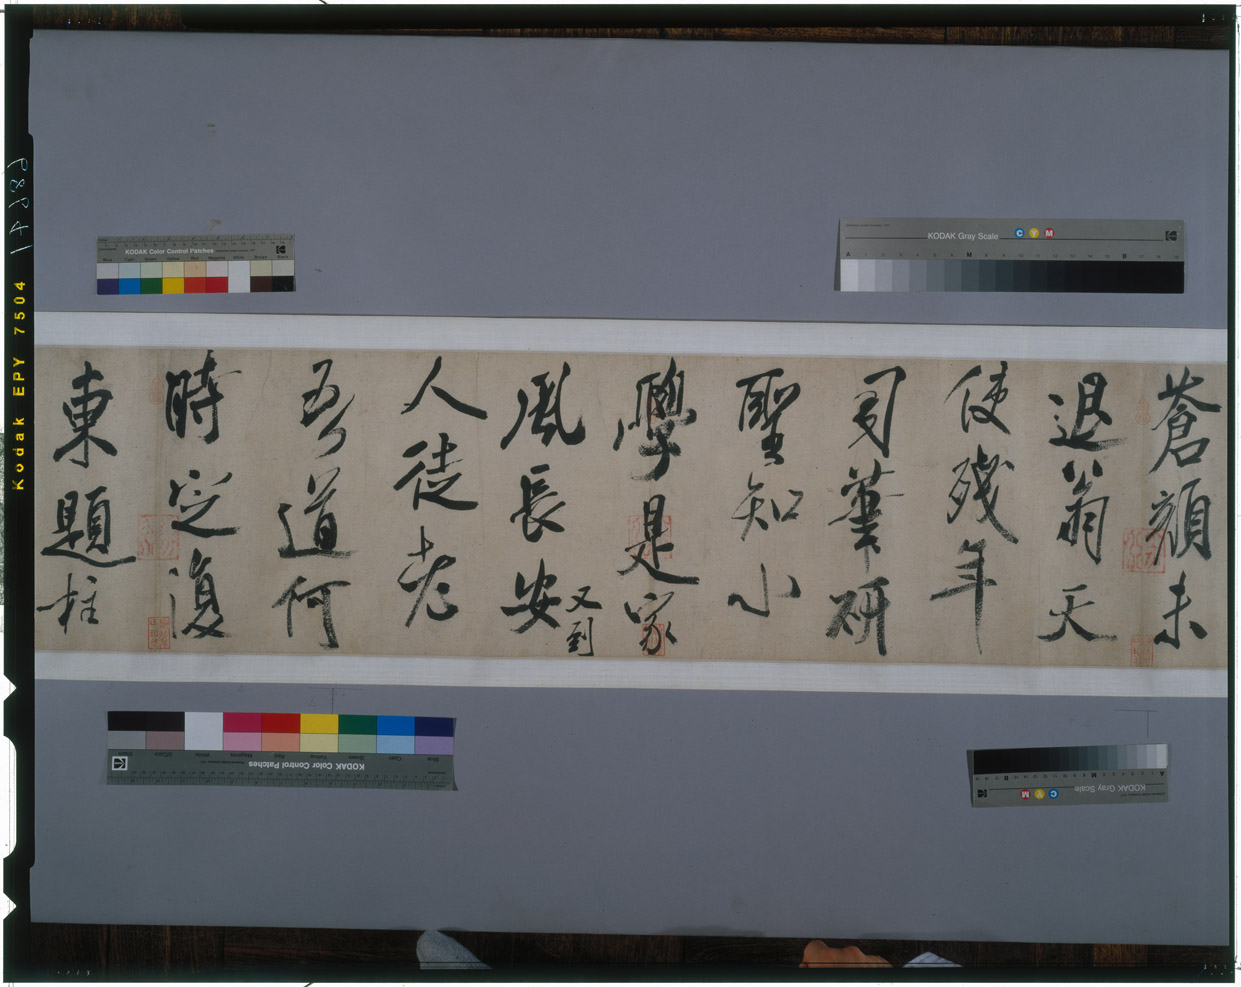 蒼顏未
退翁天
使殘年
司筆研
聖知小
學是家
風長安
又到
人徒老
吾道何
時定復
東題柱
KODAK Color Control Patches
KODAK Gray Scale
C Y M
A M B
KODAK Color Control Patches
KODAK Gray Scale
C Y M
Kodak EPY 7504